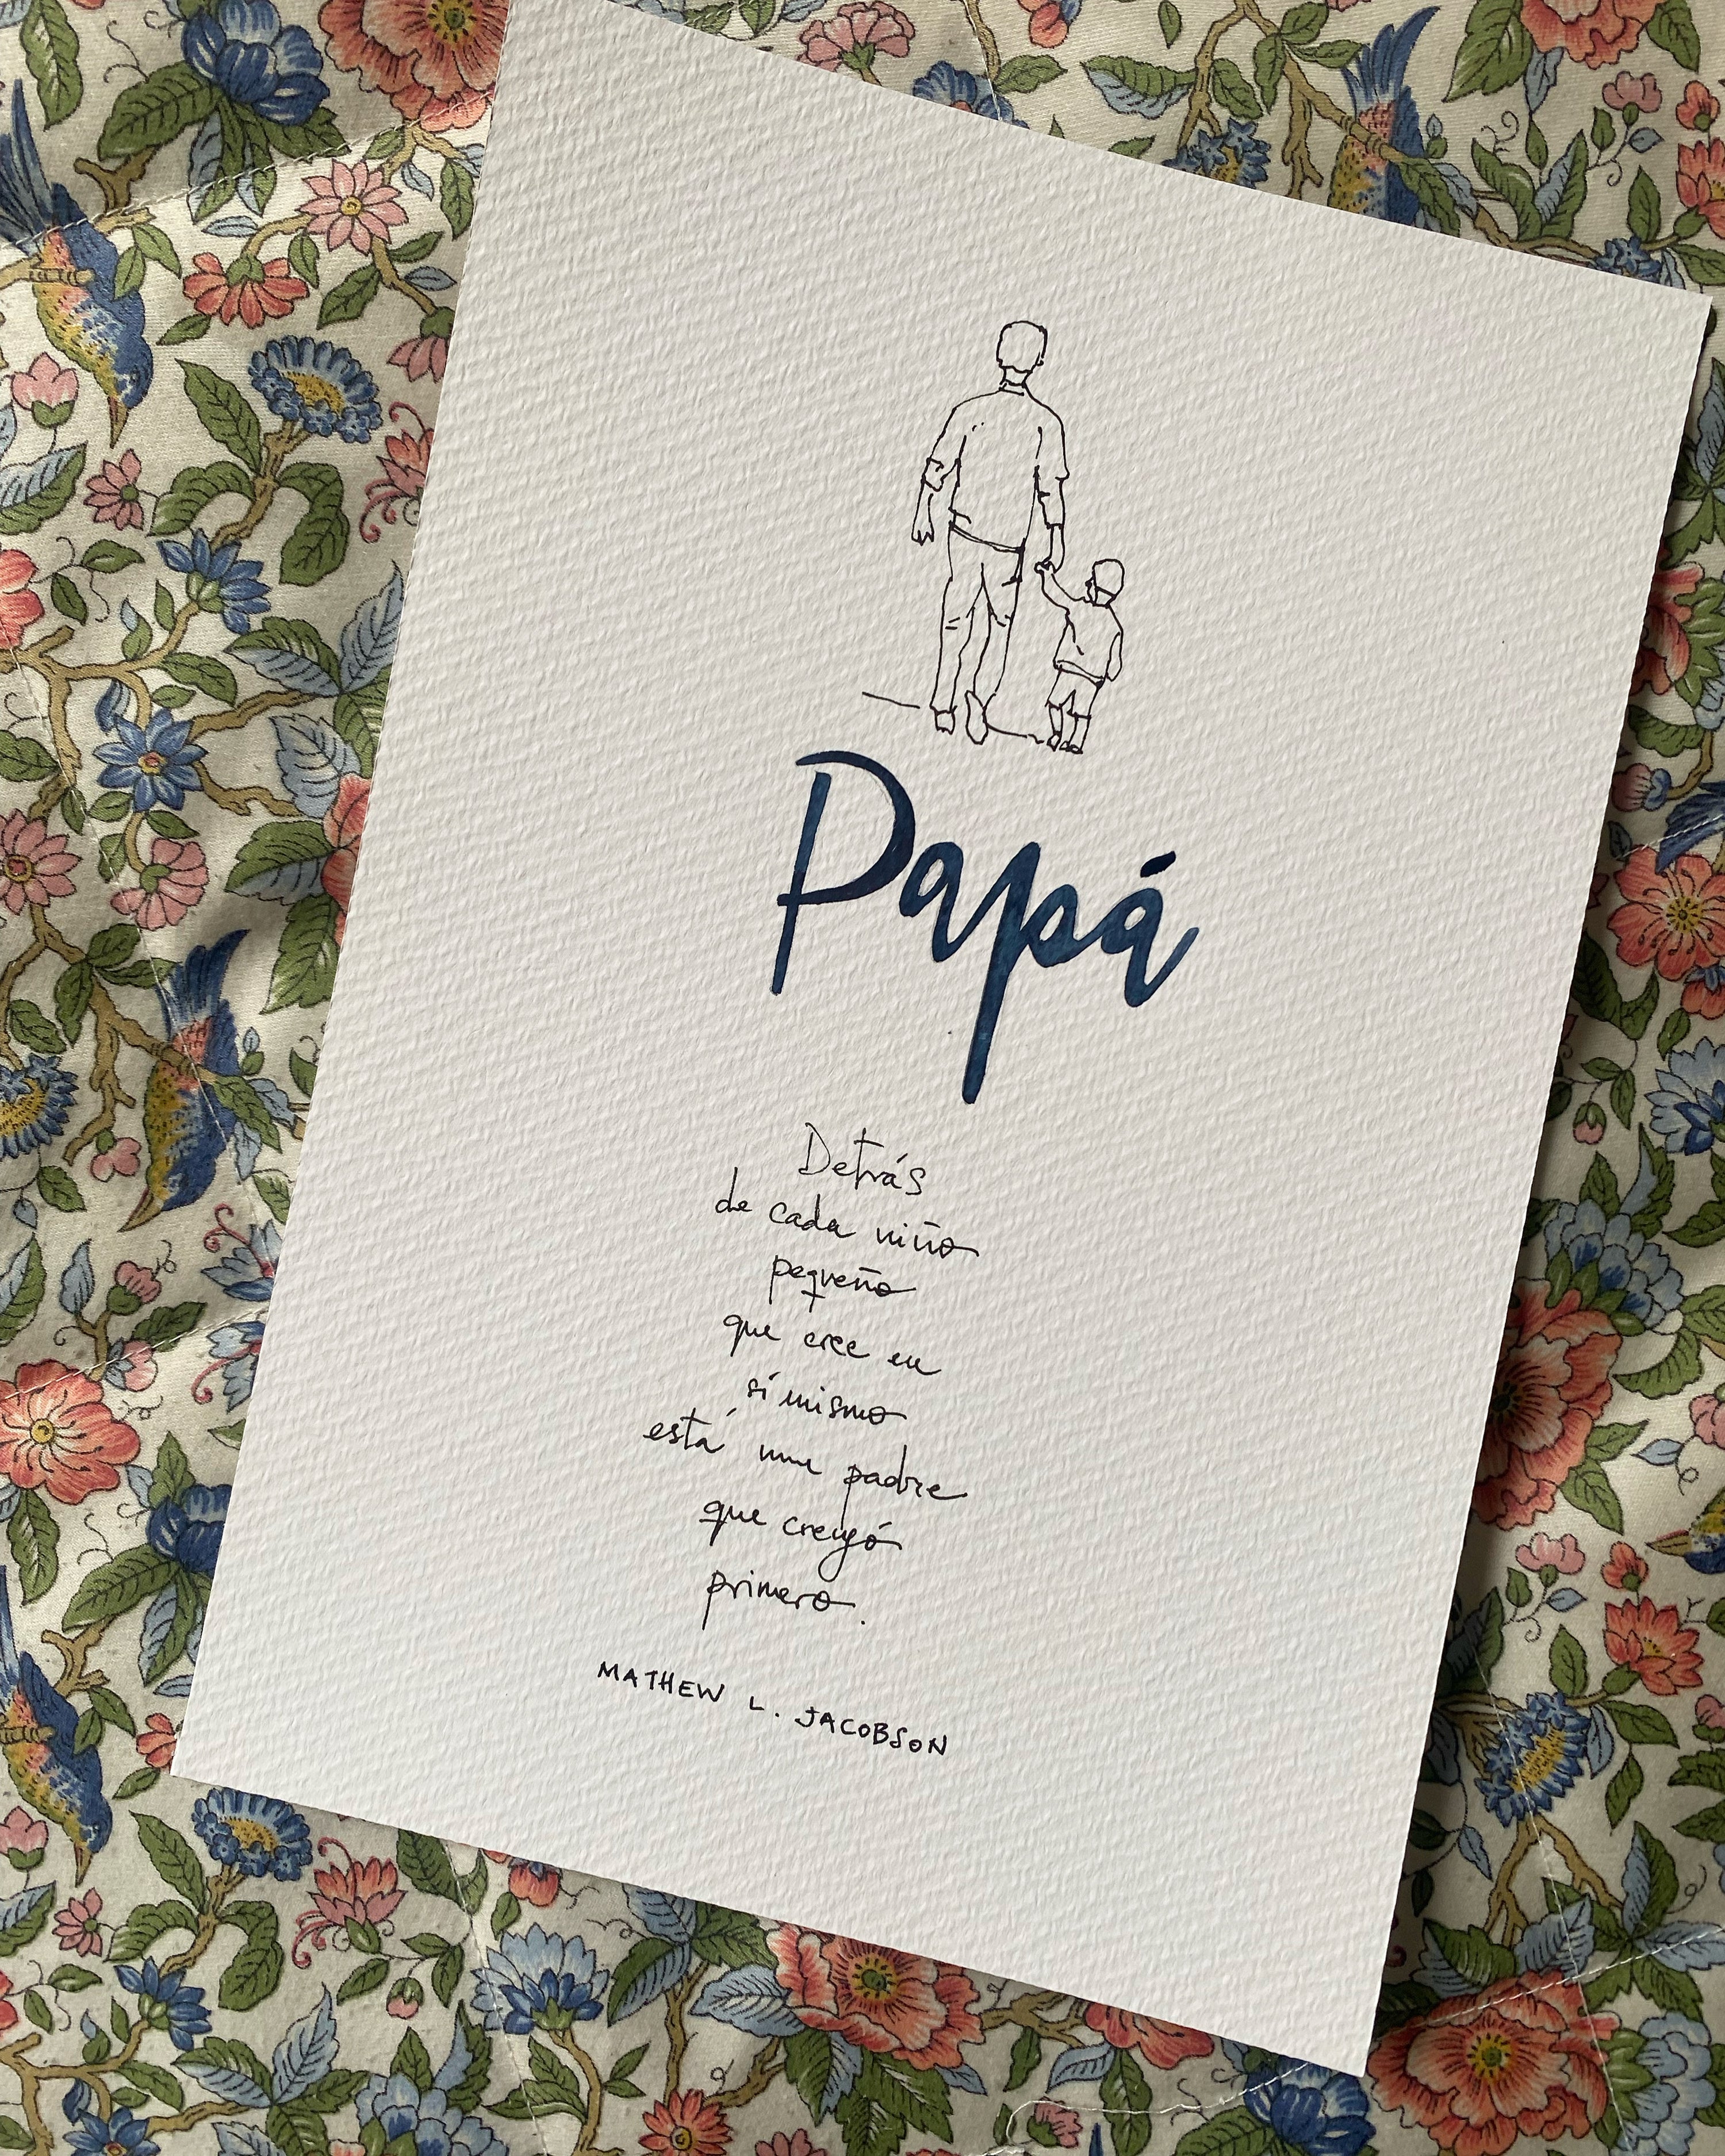 Papá
Detrás
de cada niño
pequeño
que cree en
sí mismo
está un padre
que creyó
primero.
MATHEW L. JACOBSON